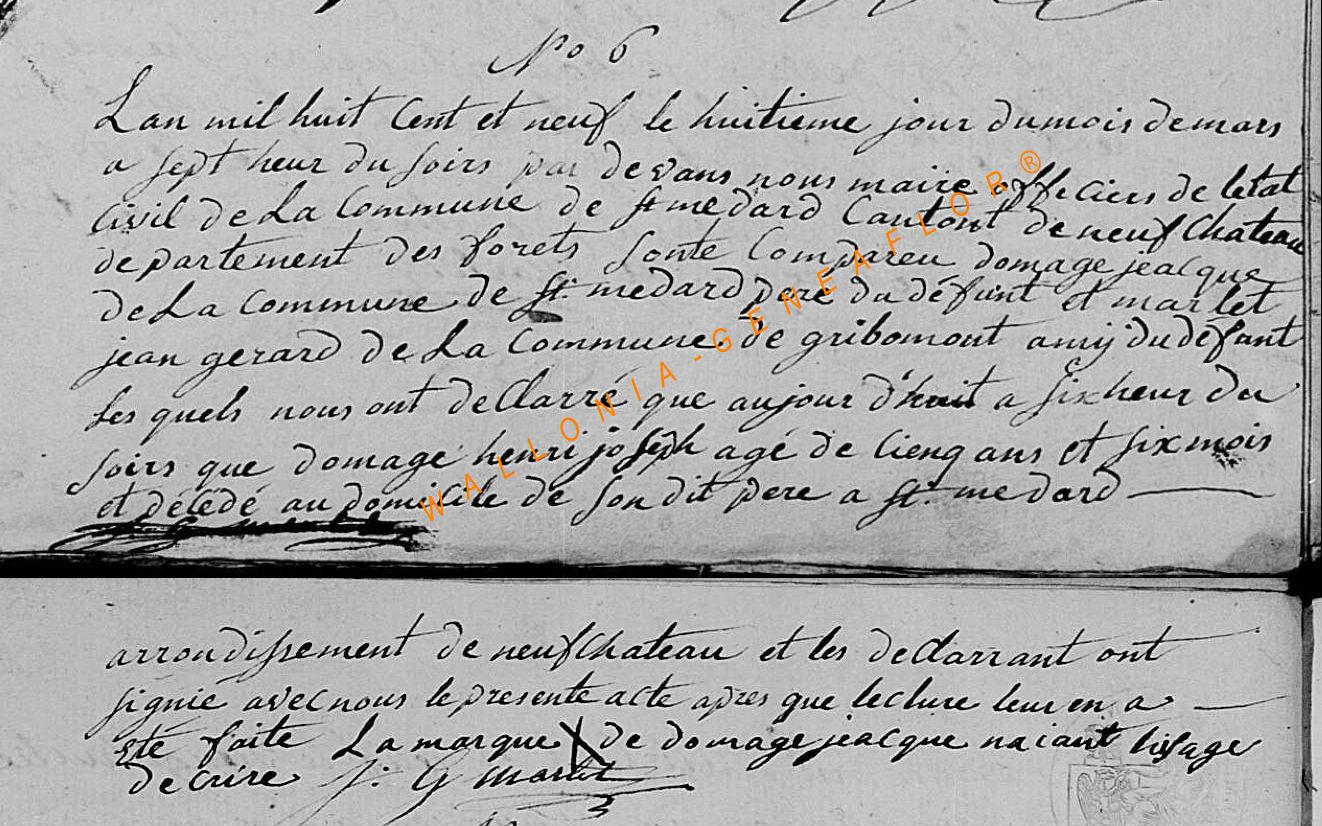 No 6
Lan mil huit Cent et neuf le huitieme jour dumois demars
a sept heur du soirs par devans nous maire officiers de letat
Civil de La Commune de st medard Cantont de neufChateau
departement des forets sonte Compareu domage jeacque
de La Commune de st medard pere du défunt et marlet
jean gerard de La Commune de gribomont amij du défunt
les quels nous ont deClarré que aujour d'huit a six heur du
soirs que domage henri joseph agé de Cienq ans et six mois
et décédé au domicile de son dit pere a st medard
arrondissement de neufChateau et les deClarrant ont
signié avec nous le presente acte apres que lecture leur en a
eté faite La marque X de domage jeacque naiant lusage
decrire J: G marlet
WALLONIA-GENEAFLOR®